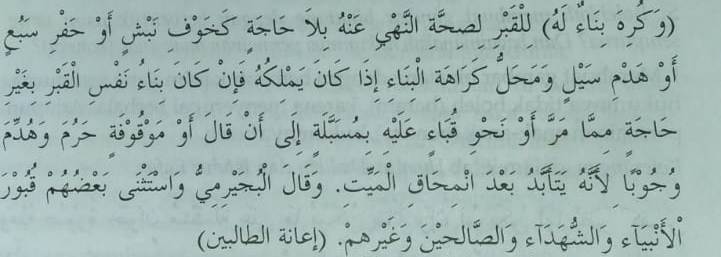 (وَكُرِهَ بِنَاءٌ لَهُ) لِلْقَبْرِ لِصِحَّةِ النَّهْيِ عَنْهُ بِلاَ حَاجَةٍ كَخَوْفِ نَبْشٍ أَوْ حَفْرِ سَبُعٍ
أَوْ هَدْمِ سَيْلٍ وَمَحَلُّ كَرَاهَةِ الْبِنَاءِ إِذَا كَانَ يَمْلِكُهُ فَإِنْ كَانَ بِنَاءُ نَفْسِ الْقَبْرِ بِغَيْرِ
حَاجَةٍ مِمَّا مَرَّ أَوْ نَحْوِ قُبَاءٍ عَلَيْهِ بِمُسَبَّلَةٍ إِلَى أَنْ قَالَ أَوْ مَوْقُوْفَةٍ حَرُمَ وَهُدِّمَ
وُجُوْبًا لِأَنَّهُ يَتَأَبَّدُ بَعْدَ انْمِحَاقِ الْمَيِّتِ. وَقَالَ الْبُجَيْرِمِيُّ وَاسْتَثْنَى بَعْضُهُمْ قُبُوْرَ
اْلأَنْبِيَآءِ وَالشُّهَدَآءِ وَالصَّالِحِيْنَ وَغَيْرِهِمْ. (إعانة الطالبين)